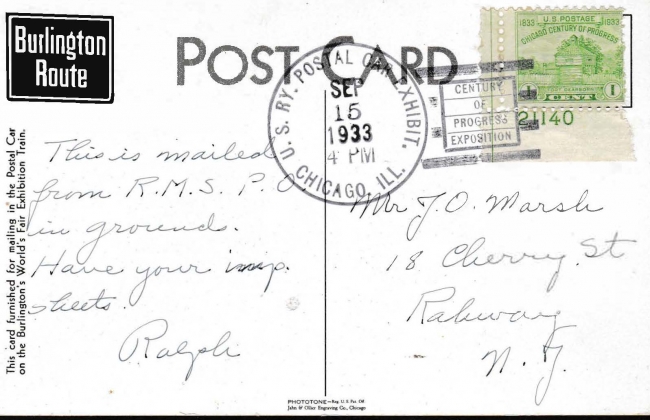 Burlington
Route
POST CARD
This card furnished for mailing in the Postal Car
on the Burlington's World's Fair Exhibition Train.
U.S. RY. POSTAL CAR EXHIBIT,
CHICAGO, ILL.
SEP
15
1933
4 PM
CENTURY
OF
PROGRESS
EXPOSITION
1833 U.S. POSTAGE 1933
CHICAGO CENTURY OF PROGRESS
FORT DEARBORN
1 CENT 1
21140
This is mailed
from R.M.S. P.O
in grounds.
Have your imp.
sheets.
Ralph
Mr J.O. Marsh
18 Cherry St
Rahway
N. J.
PHOTOTONE—Reg. U.S. Pat. Off.
John & Ollier Engraving Co., Chicago